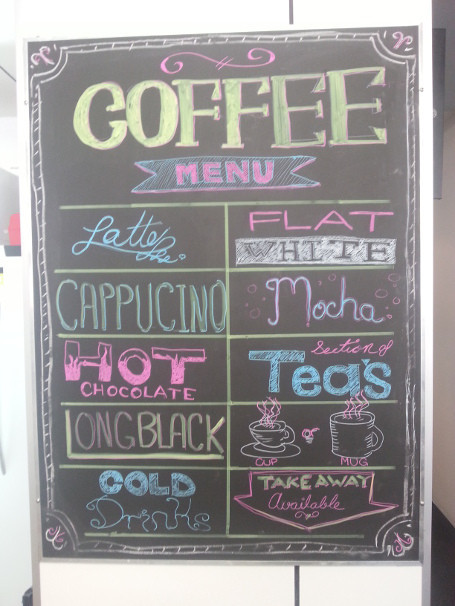 COFFEE
MENU
Latte
FLAT
WHITE
CAPPUCINO
Mocha
HOT
CHOCOLATE
Section of
Teas
LONGBLACK
CUP
MUG
COLD
Drinks
TAKE AWAY
Available